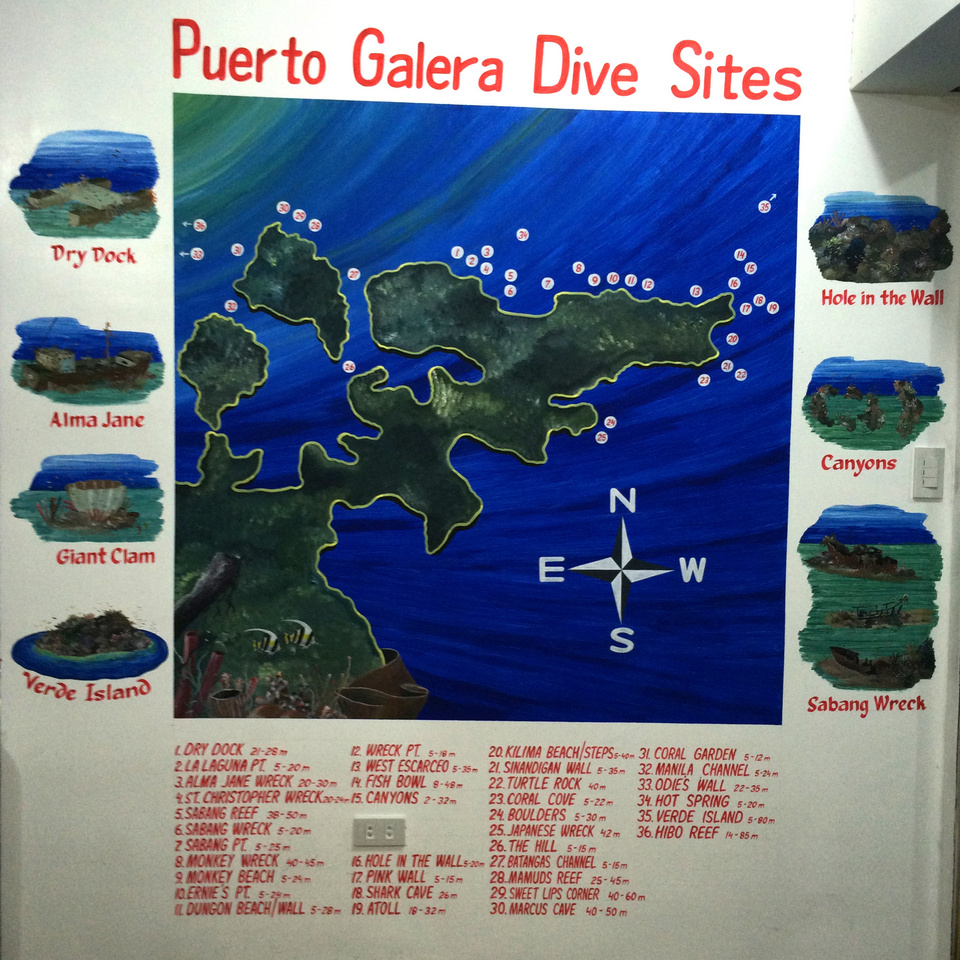 Puerto Galera Dive Sites
Dry Dock
Alma Jane
Giant Clam
Verde Island
Hole in the Wall
Canyons
Sabang Wreck
36
33
31
30
29
28
32
27
26
1
2
3
4
34
5
6
7
8
9
10
11
12
13
35
14
15
16
17
18
19
20
21
22
23
24
25
N
E W
S
1. DRY DOCK 21-28m
2. LA LAGUNA PT. 5-20m
3. ALMA JANE WRECK 20-30m
4. ST. CHRISTOPHER WRECK 20-24m
5. SABANG REEF 38-50m
6. SABANG WRECK 5-20m
7 SABANG PT. 5-25m
8. MONKEY WRECK 40-45m
9. MONKEY BEACH 5-24m
10. ERNIE'S PT. 5-24m
11. DUNGON BEACH/WALL 5-28m
12. WRECK PT. 5-18m
13. WEST ESCARCEO 5-35m
14. FISH BOWL 8-48m
15. CANYONS 2-32m
16. HOLE IN THE WALL 5-20m
17. PINK WALL 5-15m
18. SHARK CAVE 26m
19. ATOLL 18-32m
20. KILIMA BEACH/STEPS 5-40m
21. SINANDIGAN WALL 5-35m
22. TURTLE ROCK 40m
23. CORAL COVE 5-22m
24. BOULDERS 5-30m
25. JAPANESE WRECK 42m
26. THE HILL 5-15m
27. BATANGAS CHANNEL 5-15m
28. MAMUDS REEF 25-45m
29. SWEET LIPS CORNER 40-60m
30. MARCUS CAVE 40-50m
31. CORAL GARDEN 5-12m
32. MANILA CHANNEL 5-24m
33. ODIES WALL 22-35m
34. HOT SPRING 5-20m
35. VERDE ISLAND 5-80m
36. HIBO REEF 14-85m